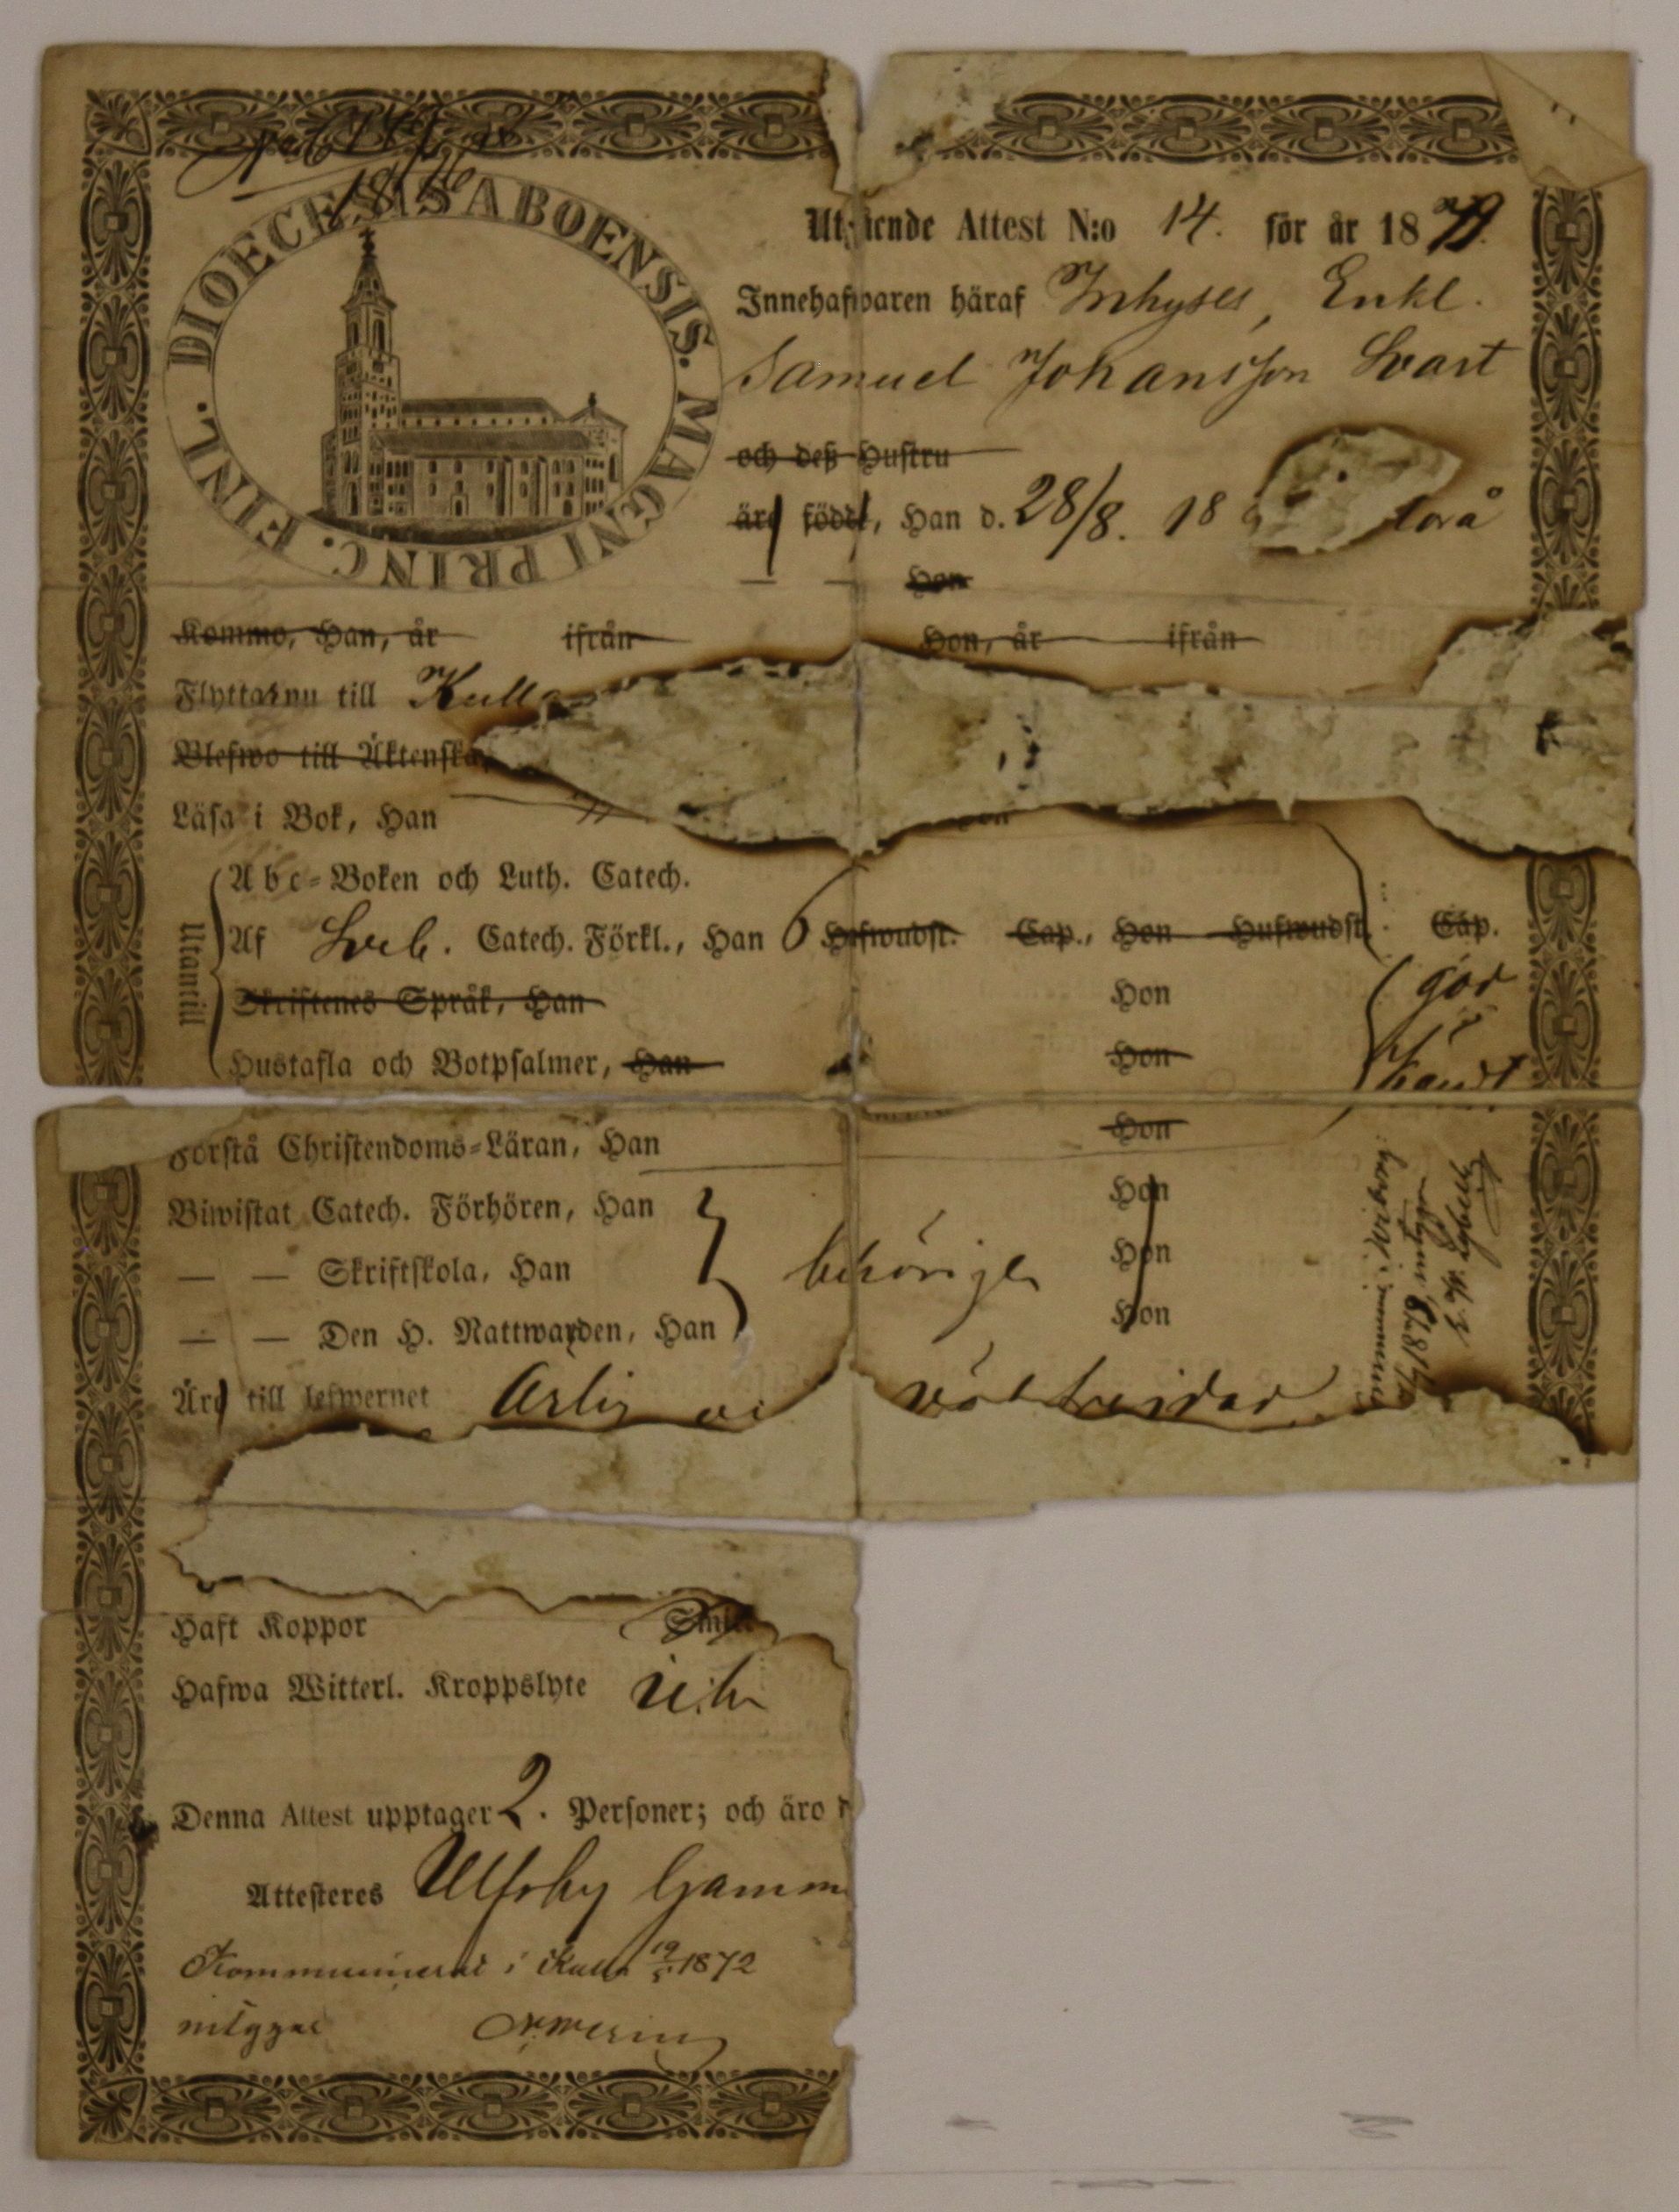 DIOECESIS ABOENSIS. MAGNI PRINC. FINL.
Utgående Attest N:o 14. för år 1879.
Innehafwaren häraf Inhyses, Enkl.
Samuel Johansson Svart
och deß Hustru
äro födde, Han d. 28/8. 18
Hon
Kommo, Han, år ifrån Hon, år ifrån
Flytta nu till Kulla
Blefwo till Äktenska
Läsa i Bok, Han
Utantill
Abc-Boken och Luth. Catech.
Af Sveb. Catech. Förkl., Han Hufwudst. Cap., Hon Hufwudst. Cap.
Skriftenes Språk, Han Hon god
Hustafla och Botpsalmer, Han Hon känd
Förstå Christendoms-Läran, Han Hon
Biwistat Catech. Förhören, Han Hon
— — Skriftskola, Han behörigen Hon
— — Den H. Nattwarden, Han Hon
Äro till lefwernet Ärlig välfrejdad
Haft Koppor
Hafwa Witterl. Kroppslyte icke
Denna Attest upptager 2. Personer; och äro
Attesteres Ulfsby Gamm
Kommunicerat i Kulla 19/5 1872